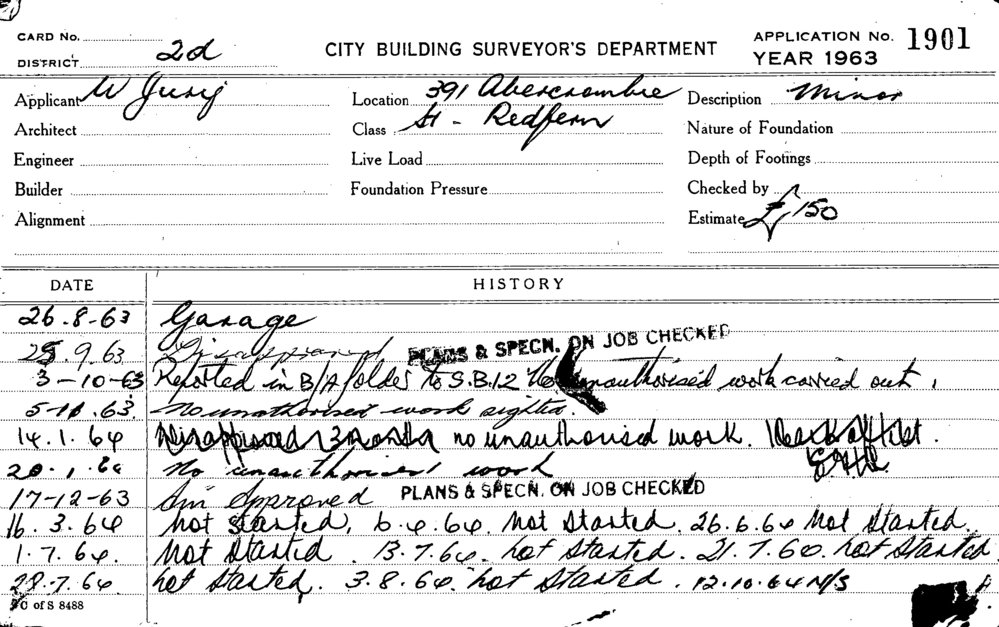 CARD No.
DISTRICT 2d
CITY BUILDING SURVEYOR'S DEPARTMENT
APPLICATION No. 1901
YEAR 1963
Applicant W Jurij
Location 391 Abercrombie
Description Minor
Architect
Class St - Redfern
Nature of Foundation
Engineer
Live Load
Depth of Footings
Builder
Foundation Pressure
Checked by
Alignment
Estimate £150
DATE
HISTORY
26.8-63 Garage
25.9.63 Disapproved
PLANS & SPECN. ON JOB CHECKED
3-10-63 Reported in B/A folder to S.B.12 No unauthorised work carried out.
5-11.63. No unathorised work sighted.
14.1.64 Disapproved 3 months no unauthorised work.
20.1.64 No unauthorised work
17-12-63 Approved
PLANS & SPECN. ON JOB CHECKED
16.3.64 not started, 6.4.64. Not started. 26.6.64 Not started.
1.7.64. Not started. 13.7.64. not started. 21.7.60. not started
28.7.64 not started. 3.8.64. not started. 12.10.64 N/S
C of S 8488